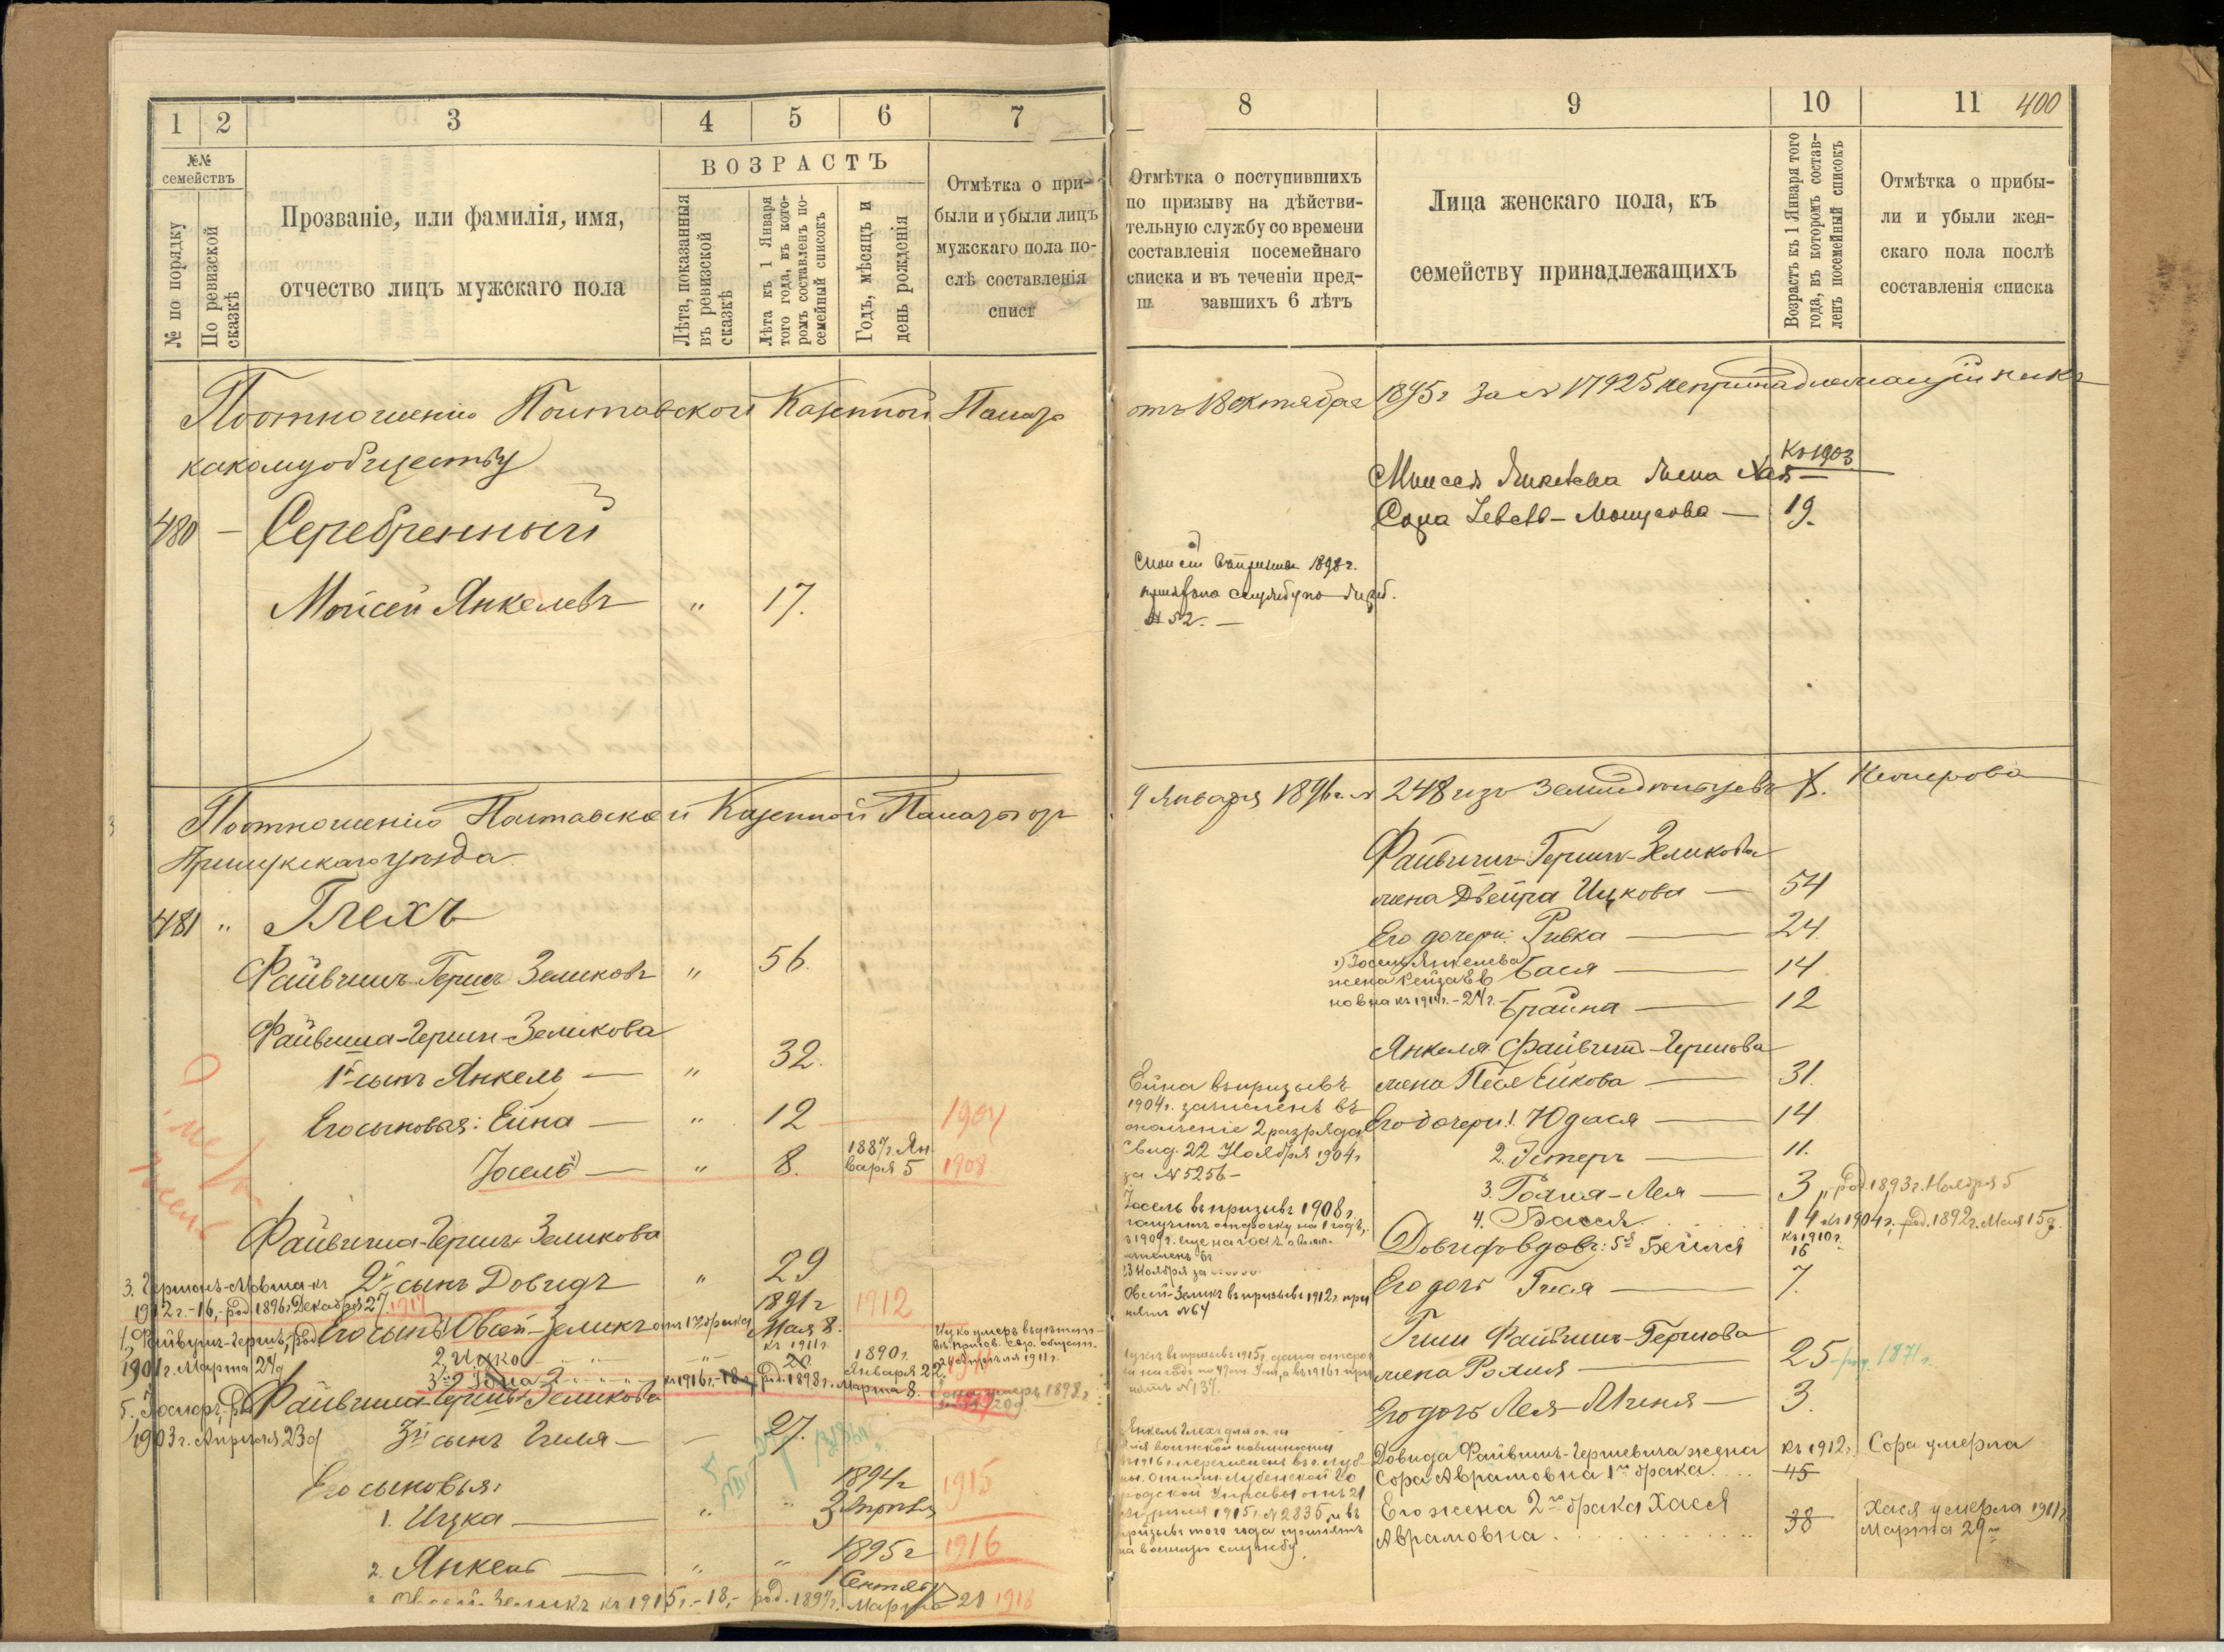 1 2 3 4 5 6 7
№№ семействъ
№ по порядку
По ревизской сказкѣ
Прозваніе, или фамилія, имя,
отчество лицъ мужскаго пола
ВОЗРАСТЪ
Лѣта, показанныя въ ревизской сказкѣ
Лѣта къ 1 Января того года, въ кото-ромъ составленъ по-семейный списокъ
Годъ, мѣсяцъ и день рожденія
Отмѣтка о при-
были и убыли лицъ
мужскаго пола по-
слѣ составленія
списк
По отношенію Полтавской Казенной Палаты
какому обществу
480 — Серебренный
Мойсей Янкелевъ " 17.
По отношенію Полтавской Казенной Палаты от
Прилукскаго уѣзда
481 " Блехъ
Файвишъ-Гершъ Зеликовъ " 56.
Файвиша-Герши-Зеликова
1й сынъ Янкель — " 32.
Его сыновья: Ейна — " 12 1904
Іосель — " 8. 1887 г. Ян-
варя 5 1908
Файвиша-Герши Зеликова
2й сынъ Довидъ " 29
3. Гершонъ-Мовша къ
1912 г. - 16, - род. 1896 г. Декабря 27 1917
Его сынъ: Овсей-Зеликъ отъ 1го брака 1891 г
Мая 8. 1912
1. Файвушъ-Гершъ, род
1901 г. Марта 24 д
2. Ицко " къ 1911 г. 20. 1890 г.
Января 22.
Ицко умеръ
1911 г.
къ 1916 г. - 18 г. род. 1898 г. Марта 8.
умеръ 1898 г.
Файвиша-Герша Зеликова
1903 г. Апрѣля 23 д
3й сынъ Гиля — 27.
Его сыновья:
1. Ицка — " " 1894 г
3 Апрѣля 1915
2. Янкель — " " 1895 г
1 Сентяб 1916
Овсей-Зеликъ къ 1915 г. - 18, - род. 1897 г. Марта 21 1918
8 9 10 11 400
Отмѣтка о поступившихъ
по призыву на дѣйстви-
тельную службу со времени
составленія посемейнаго
списка и въ теченіи пред-
ш вавшихъ 6 лѣтъ
Лица женскаго пола, къ
семейству принадлежащихъ
Возрастъ къ 1 Января того года, въ которомъ состав-ленъ посемейный списокъ
Отмѣтка о прибы-
ли и убыли жен-
скаго пола послѣ
составленія списка
отъ 18 октября 1895 г за № 17925 непринадлежащій ни къ
Къ 1903
Мойсея Янкелева жена Хая —
Сора Зевель-Мошкова — 19.
1898 г.
на службу по жреб.
№ 52. —
9 Января 1896 г. № 248 изъ земледѣльцевъ
Файвишъ-Гершъ-Зеликова
жена Двейра Ицкова — 54
Его дочери: Ривка — 24.
1) Іосель Янкелева
жена Рейза
Бася — 14.
къ 1914 г. - 24 г.
Брайна — 12
Янкеля Файвиш-Гершова
жена Песя Ейкова — 31.
Его дочери 1. Юдася — 14
2. Эстеръ — 11.
3. Голия-Лея — 3 род. 1893 г. Ноября 5
4. Бася 14 къ 1904 г., род. 1892 г. Мая 15 д.
къ 1910 г.
5я Бейля 16
Его дочь Гися — 7.
Ейна въ призывъ
1904 г. зачисленъ въ
ополченіе 2 разряда
Свид. 22 Ноября 1904 г
за № 5256 —
Іосель въ призывъ 1908 г.
получилъ отсрочку на 1 годъ,
23 Ноября за
Овсей-Зеликъ въ призывъ 1912 г. при
нятъ № 64
Гили Файвишъ-Гершова
жена Рохля — 25 - род. 1871 г.
Его дочь Лея-Матеня — 3.
въ призывъ 1915 г. дана отсроч
№ 137
воинской повинности
Лубенской Го
родской Управы отъ 21
1915 г. № 2835, и въ
призывъ того года принятъ
на военную службу.
Довида Файвишъ-Гершевича жена
Сора Аврамовна 1го брака къ 1912 г. 45 Сора умерла
Его жена 2го брака Хася
Аврамовна 38 Хася умерла 1911 г
Марта 29